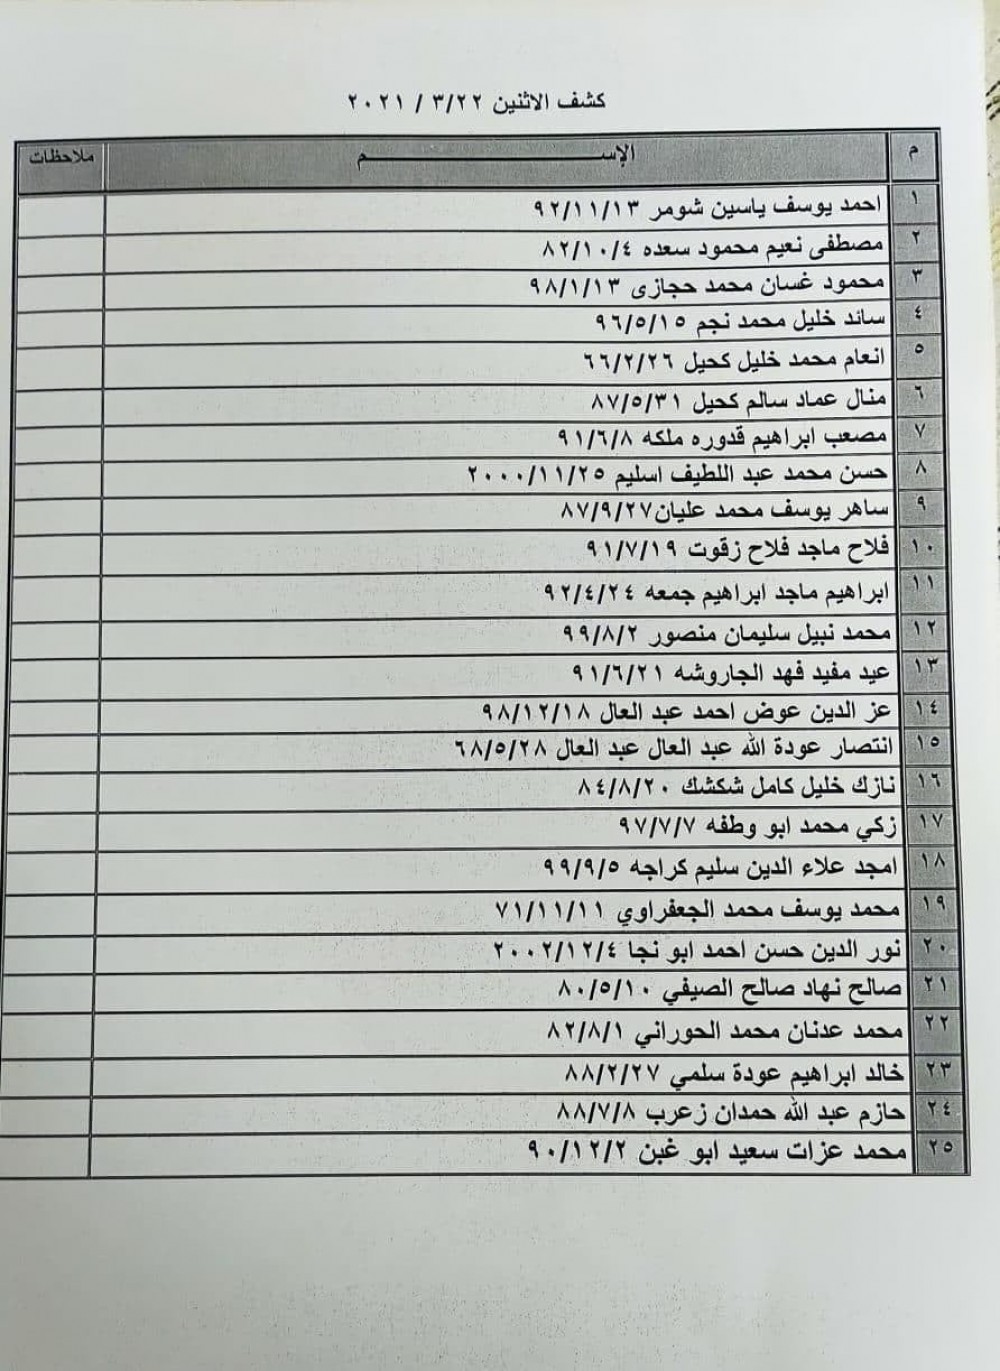 كشف الاثنين ٣/٢٢ / ٢٠٢١
م الإســـــــــم ملاحظات
١ احمد يوسف ياسين شومر ٩٢/١١/١٣
٢ مصطفى نعيم محمود سعده ٨٢/١٠/٤
٣ محمود غسان محمد حجازى ٩٨/١/١٣
٤ سائد خليل محمد نجم ٩٦/٥/١٥
٥ انعام محمد خليل كحيل ٦٦/٢/٢٦
٦ منال عماد سالم كحيل ٨٧/٥/٣١
٧ مصعب ابراهيم قدوره ملكه ٩١/٦/٨
٨ حسن محمد عبد اللطيف اسليم ٢٠٠٠/١١/٢٥
٩ ساهر يوسف محمد عليان٨٧/٩/٢٧
١٠ فلاح ماجد فلاح زقوت ٩١/٧/١٩
١١ ابراهيم ماجد ابراهيم جمعه ٩٢/٤/٢٤
١٢ محمد نبيل سليمان منصور ٩٩/٨/٢
١٣ عيد مفيد فهد الجاروشه ٩١/٦/٢١
١٤ عز الدين عوض احمد عبد العال ٩٨/١٢/١٨
١٥ انتصار عودة الله عبد العال عبد العال ٦٨/٥/٢٨
١٦ نازك خليل كامل شكشك ٨٤/٨/٢٠
١٧ زكي محمد ابو وطفه ٩٧/٧/٧
١٨ امجد علاء الدين سليم كراجه ٩٩/٩/٥
١٩ محمد يوسف محمد الجعفراوي ٧١/١١/١١
٢٠ نور الدين حسن احمد ابو نجا ٢٠٠٢/١٢/٤
٢١ صالح نهاد صالح الصيفي ٨٠/٥/١٠
٢٢ محمد عدنان محمد الحوراني ٨٢/٨/١
٢٣ خالد ابراهيم عودة سلمي ٨٨/٢/٢٧
٢٤ حازم عبد الله حمدان زعرب ٨٨/٧/٨
٢٥ محمد عزات سعيد ابو غبن ٩٠/١٢/٢